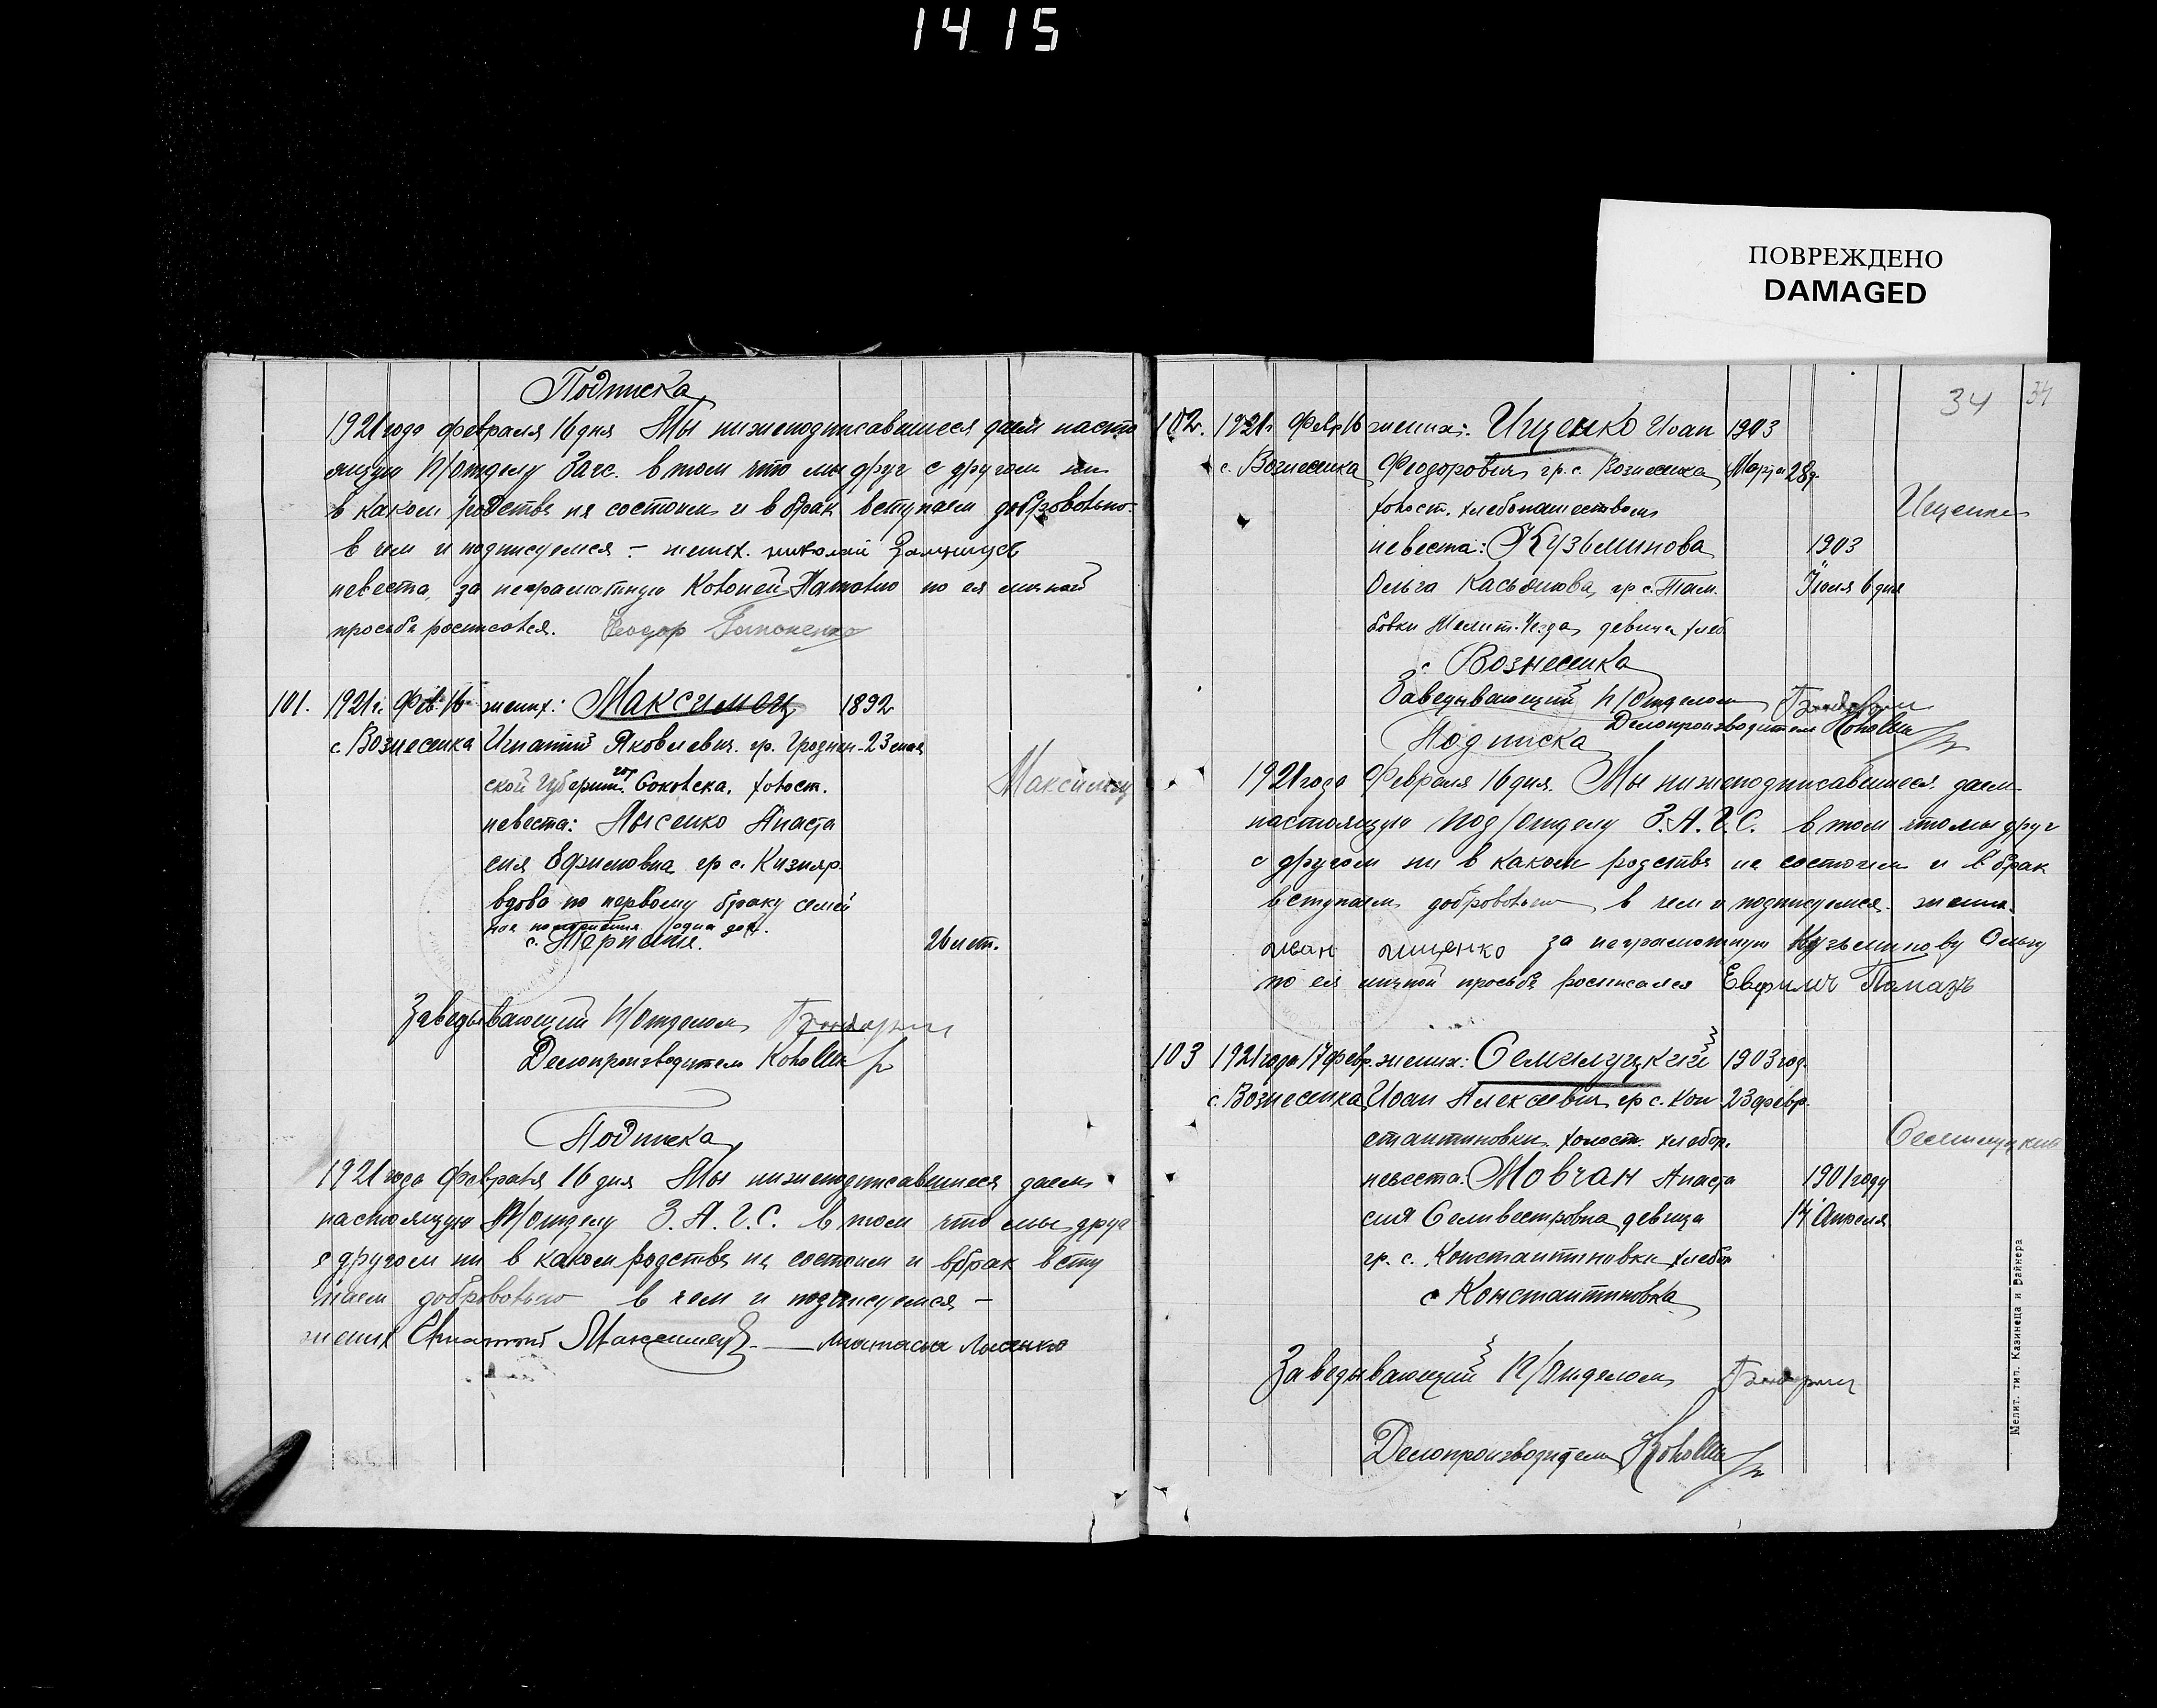 1415
ПОВРЕЖДЕНО
DAMAGED
Подписка
1921 года февраля 16 дня Мы нижеподписавшиеся даем насто
ящую п/отделу Загс. в том что мы друг с другом ни
в каком родстве не состоим и в брак вступаем добровольно
в чем и подписуемся – жених. николай
невеста, за неграмотную Наталию по ея личной
просьбе росписался. Феодор Гапоненко
101. 1921 г. Фев. 16 жених: Максимец 1892
с. Вознесенка Игнатий Яковлевич. гр. Гроднен- 23 мая
ской Губернии. Соколска. холост.
Максимец
невеста: Лысенко Анаста
сия Ефимовна гр с. Кизияр.
вдова по первому браку семей
ное положение /одна доч.
с. Терпение.
26 лет.
Заведывающий П/Отделом
Делопроизводитель
Подписка
1921 года Февраля 16 дня Мы нижеподписавшиеся даем
настоящую П/отделу З.А.Г.С. в том что мы друг
с другом ни в каком родстве не состоим и в брак всту
паем добровольно в чем и подписуемся –
жених Игнатий Максимец — Анастасия Лысенко
34 34
102. 1921 г. Февр 16 жених: Ищенко Иоан 1903
с. Вознесенка Феодорович гр. с. Вознесенка Марта 28 д.
холост. хлебопашеством
Ищенко
невеста: Кузьминова 1903
Ольга Касьянова, гр с. Там.
Июля 6 дня
бовки Мелит. Уезда, девица хлеб.
с Вознесенка
Заведывающий П/Отделом
Делопроизводитель
Подписка
1921 года Февраля 16 дня. Мы нижеподписавшиеся даем
настоящую Под/отделу З.А.Г.С. в том что мы друг
с другом ни в каком родстве не состоим и в брак
вступаем добровольно в чем и подписуемся. жених.
иван ищенко за неграмотную Кузьминову Ольгу
по ея личной просьбе росписался Евфимъ Помазъ
103 1921 года 17 февр. жених: Семилуцкий 1903 год.
с. Вознесенка Иоан Алексеевич гр с. Кон 23 февр.
стантиновки. холост. хлебор.
Семилуцкий
невеста. Мовчан Анаста 1901 году
сия Селивестровна девица 14 Апреля
гр. с. Константиновки хлебор
с Константиновка
Заведывающий П/Отделом
Делопроизводитель
Мелит. тип. Казинеца и Райнера